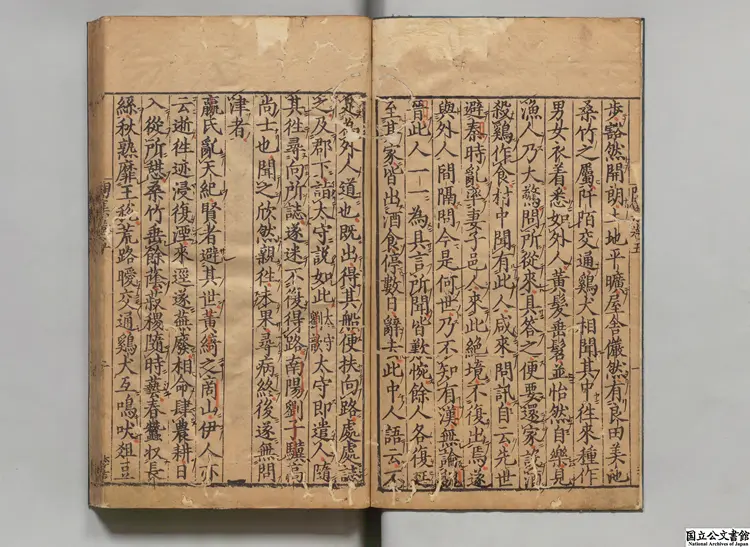 步豁然開朗土地平曠屋舍儼然有良田美池
桑竹之屬阡陌交通鷄犬相聞其中徃來種作
男女衣着悉如外人黃髮垂髫並怡然自樂見
漁人乃大驚問所從來具答之便要還家設酒
殺鷄作食村中聞有此人咸來問訊自云先世
避秦時亂率妻子邑人來此絕境不復出焉遂
與外人間隔問今是何世乃不知有漢無論魏
晉此人一一為具言所聞皆歎惋餘人各復延
至其家皆出酒食停數日辭去此中人語云不
外人道也既出得其船便扶向路處處誌
之及郡下詣太守說如此太守劉歆太守即遣人隨
其徃尋向所誌遂迷不復得路南陽劉子驥高
尚士也聞之欣然親徃未果尋病終後遂無問
津者
嬴氏亂天紀賢者避其世黃綺之商山伊人亦
云逝徃迹浸復湮來逕遂蕪廢相命肆農耕日
入從所憩桑竹垂餘蔭菽稷隨時藝春蠶收長
絲秋熟靡王稅荒路曖交通鷄犬互鳴吠俎豆
国立公文書館
National Archives of Japan